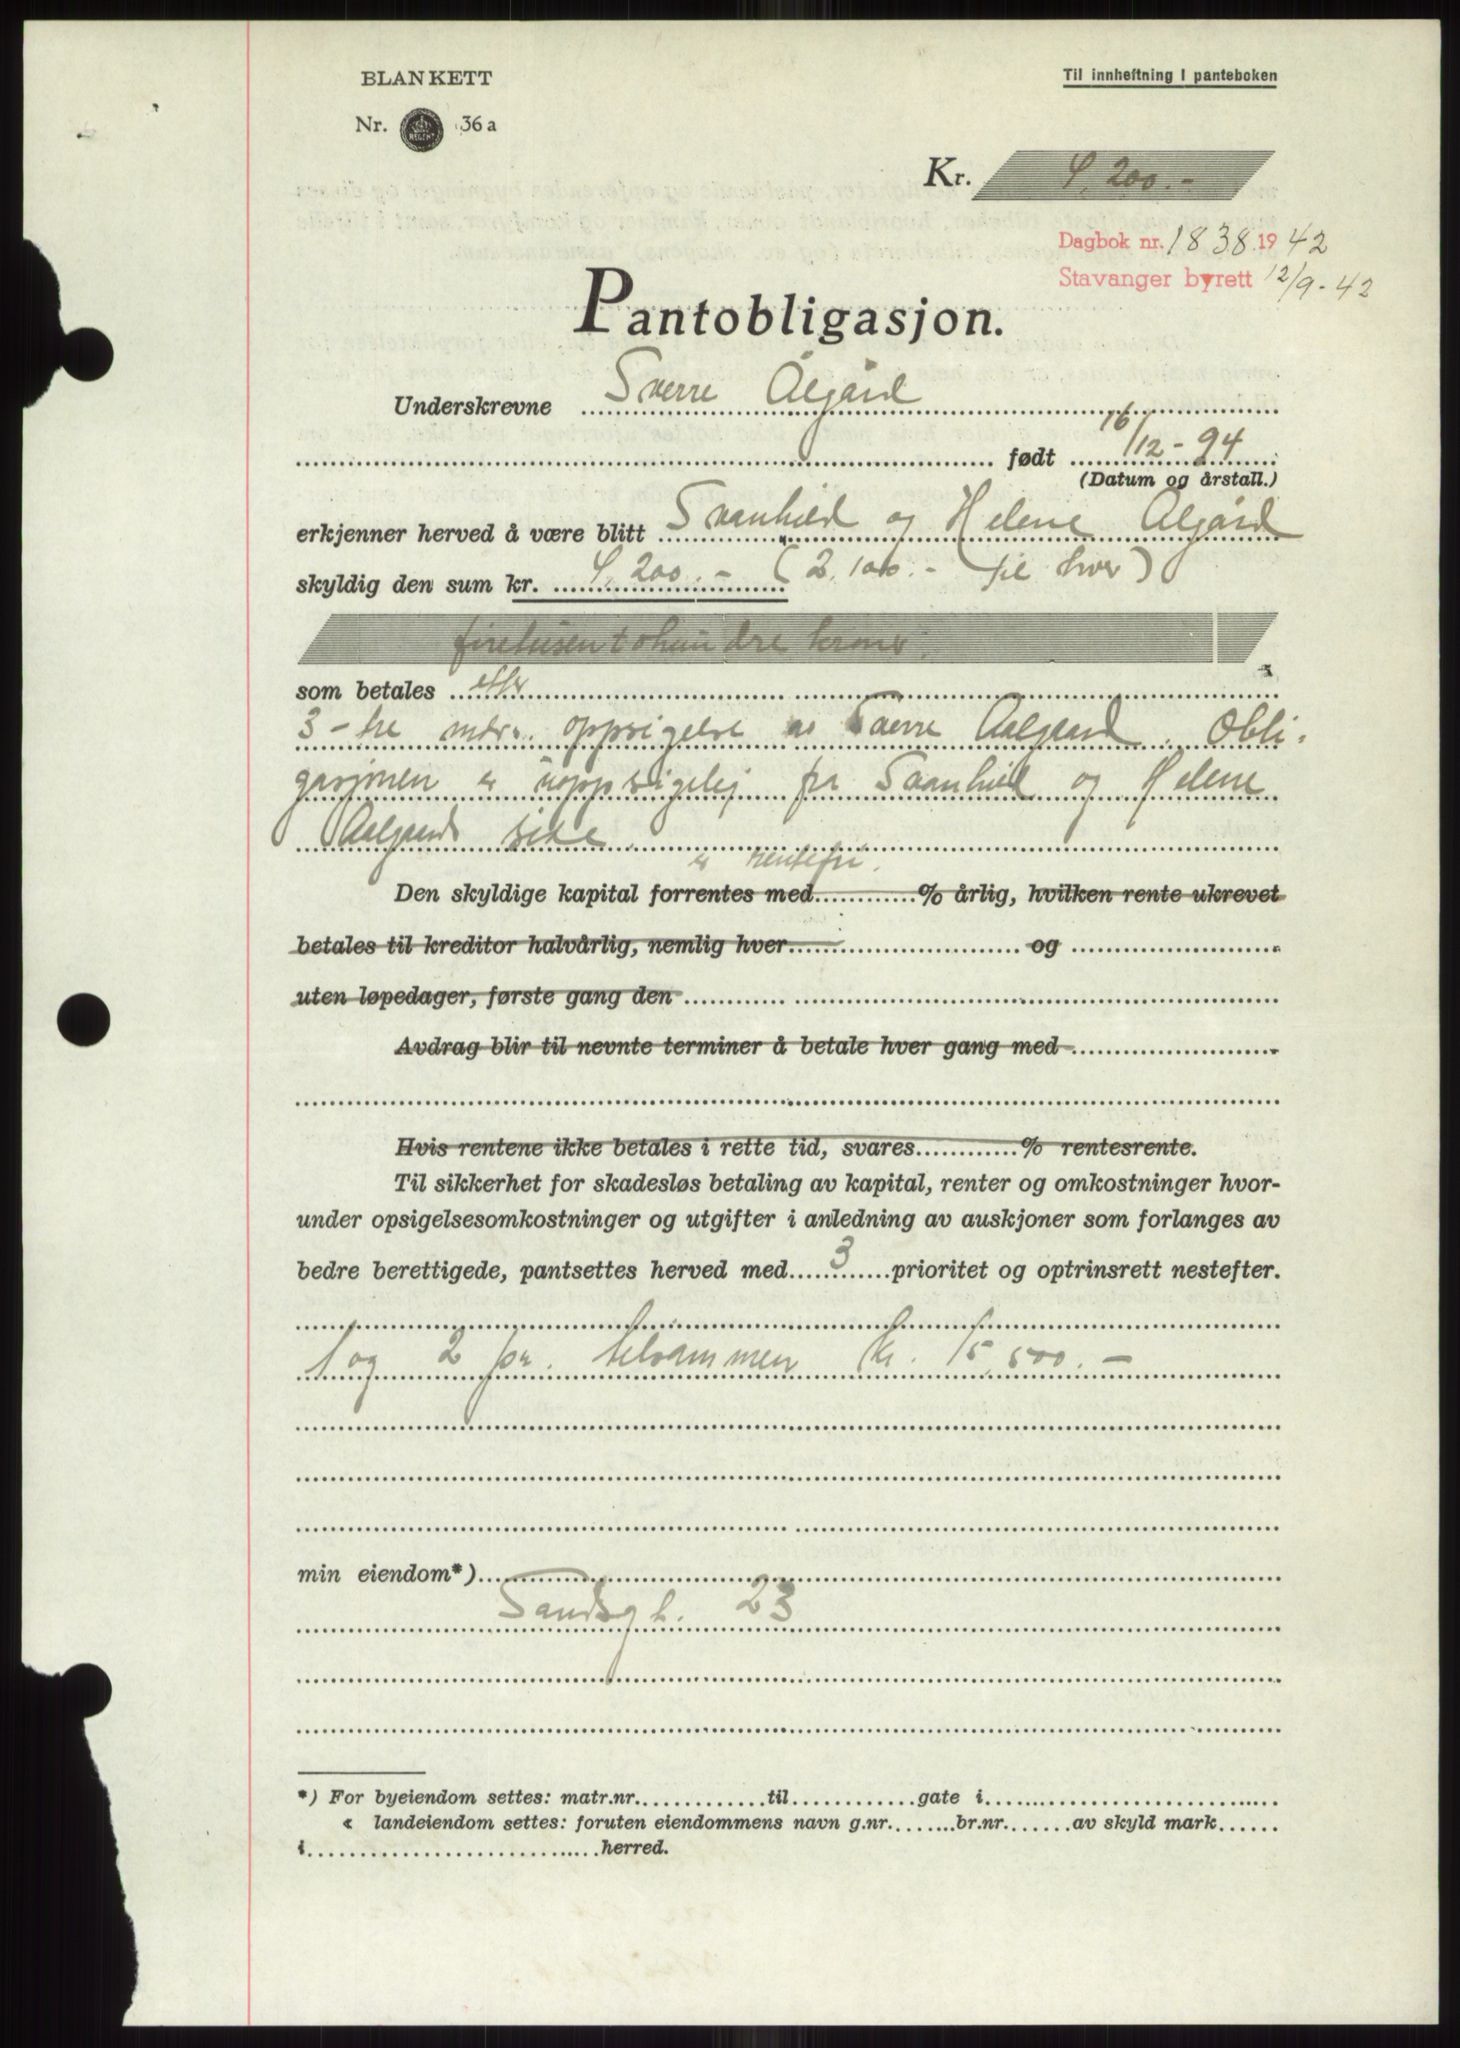 BLANKETT
Til innheftning i panteboken
Nr. 36 a
Kr. 4.200.-
Dagbok nr. 1838 1942
Stavanger byrett 12/9-42
Pantobligasjon.
Underskrevne Sverre Ålgård
født 16/12-94
(Datum og årstall.)
erkjenner herved å være blitt Svanhild og Helene Ålgård
skyldig den sum kr. 4.200.- (2.100.- til hver)
firetusentohundre kroner.
som betales efter
3-tre mdrs. oppsigelse av Sverre Aalgaard. Obli-
gasjonen er uoppsigelig fra Svanhild og Helene
Aalgaards side.
er rentefri.
Den skyldige kapital forrentes med............% årlig, hvilken rente ukrevet
betales til kreditor halvårlig, nemlig hver............ og ............
uten løpedager, første gang den ............
Avdrag blir til nevnte terminer å betale hver gang med ............
Hvis rentene ikke betales i rette tid, svares............% rentesrente.
Til sikkerhet for skadesløs betaling av kapital, renter og omkostninger hvor-
under opsigelsesomkostninger og utgifter i anledning av auskjoner som forlanges av
bedre berettigede, pantsettes herved med 3 prioritet og optrinsrett nestefter.
1 og 2 pr. tilsammen kr. 15.500.-
min eiendom*)
Sandsgt. 23
*) For byeiendom settes: matr.nr.............til............gate i............
« landeiendom settes: foruten eiendommens navn g.nr........br.nr.......av skyld mark......
i............herred.